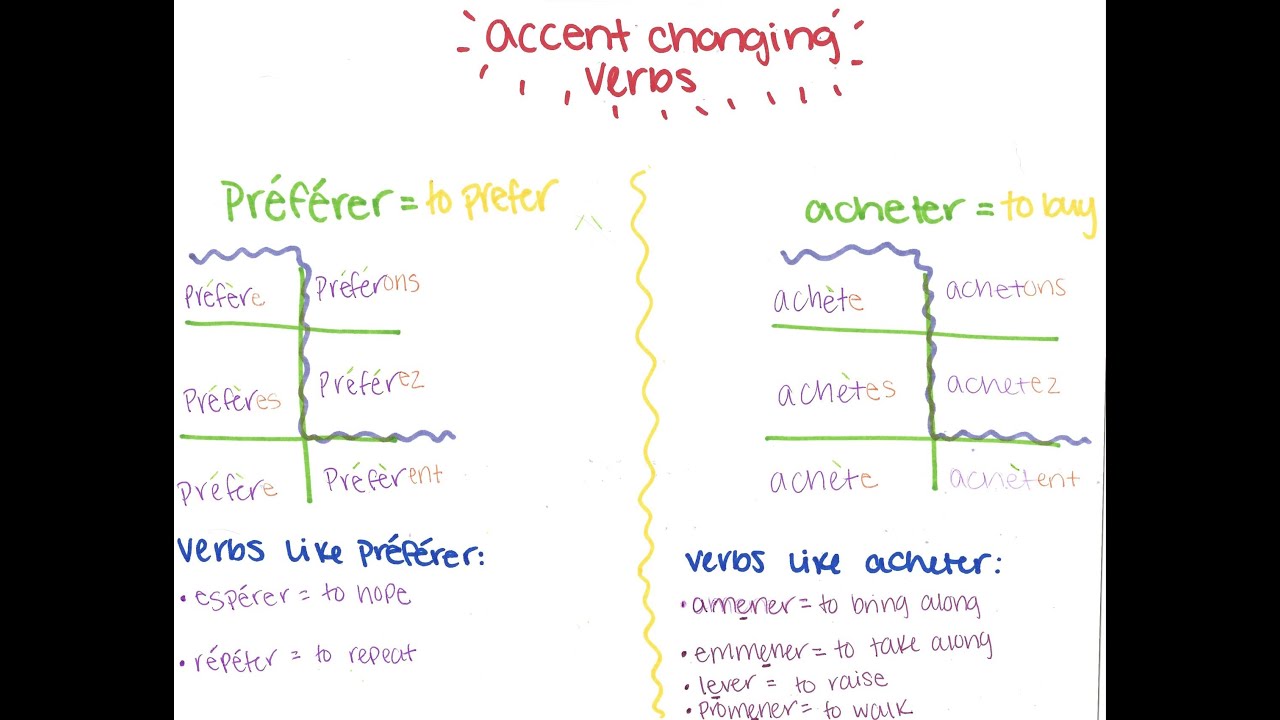 accent changing
verbs
Préférer = to prefer
Préfère Préférons
Préfères Préférez
Préfère Préfèrent
verbs like préférer:
• espérer = to hope
• répéter = to repeat
acheter = to buy
achète achetons
achètes achetez
achète achètent
verbs like acheter:
• amener = to bring along
• emmener = to take along
• lever = to raise
• promener = to walk